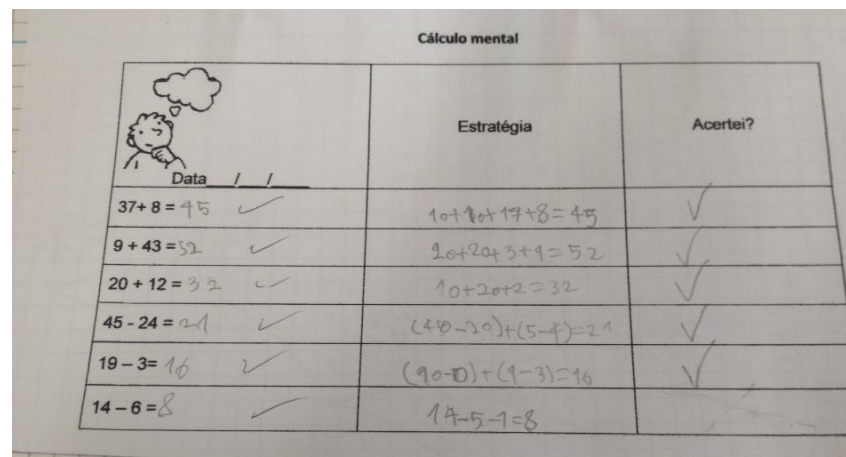 Cálculo mental
Estratégia
Acertei?
Data___/___/____
37+ 8 = 45 ✓ 10+10+17+8=45 ✓
9 + 43 = 52 ✓ 20+20+3+9=52 ✓
20 + 12 = 32 ✓ 10+20+2=32 ✓
45 - 24 = 21 ✓ (40-20)+(5-4)=21 ✓
19 – 3= 16 ✓ (10-0)+(9-3)=16 ✓
14 – 6 = 8 ✓ 14-5-1=8